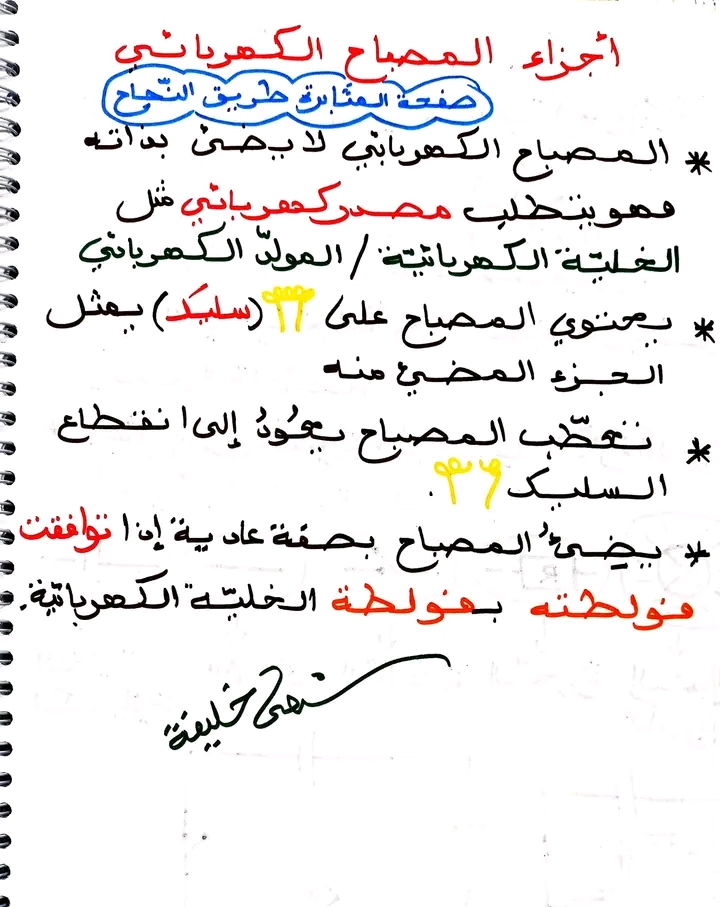 أجزاء المصباح الكهربائي
صفحة المثابرة طريق النّجاح
* المصباح الكهربائي لا يضيئ بذاته
فهو يتطلب مصدر كهربائي مثل
الخليّة الكهربائيّة / المولدّ الكهربائي
* يحتوي المصباح على (سليك) يمثل
الجزء المضيئ منه
* تعطّب المصباح يعُودُ إلى انقطاع
السليك.
* يضِيئُ المصباح بصفة عادية إذا توافقت
فولطته بفولطة الخليّة الكهربائيّة.
خليفة